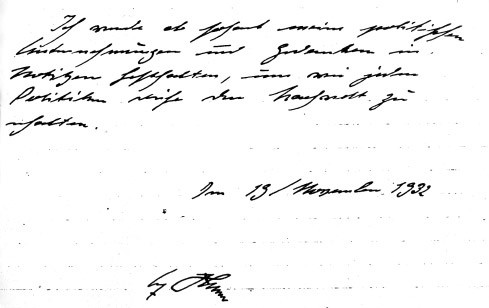 Ich werde ab sofort meine politischen
Unternehmungen und Gedanken in
Notizen festhalten, um wie jeder
Politiker der Nachwelt zu
erhalten.
Im 19/November 1932